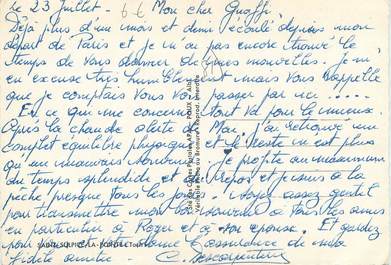 le 23 juillet. 6-6 Mon cher
Déjà plus d'un mois et demi écoulé depuis mon
départ de Paris et je n'ai pas encore trouvé le
temps de vous donner de mes nouvelles. Je m'
en excuse très humblement mais vous rappelle
que je comptais vous voir passer par ici ....
En ce qui me concerne tout va pour le mieux.
Après la chaude alerte de Mai, j'ai retrouvé mon
complet équilibre physique et le reste n'est plus
qu'un mauvais souvenir. Je profite au maximum
du temps splendide et repos et je suis à la
pêche presque tous les jours. Soyez assez gentil
pour transmettre mon bon souvenir à tous les amis
en particulier à Roger et à son épouse. Et gardez
pour l'assurance de ma
fidèle amitié.